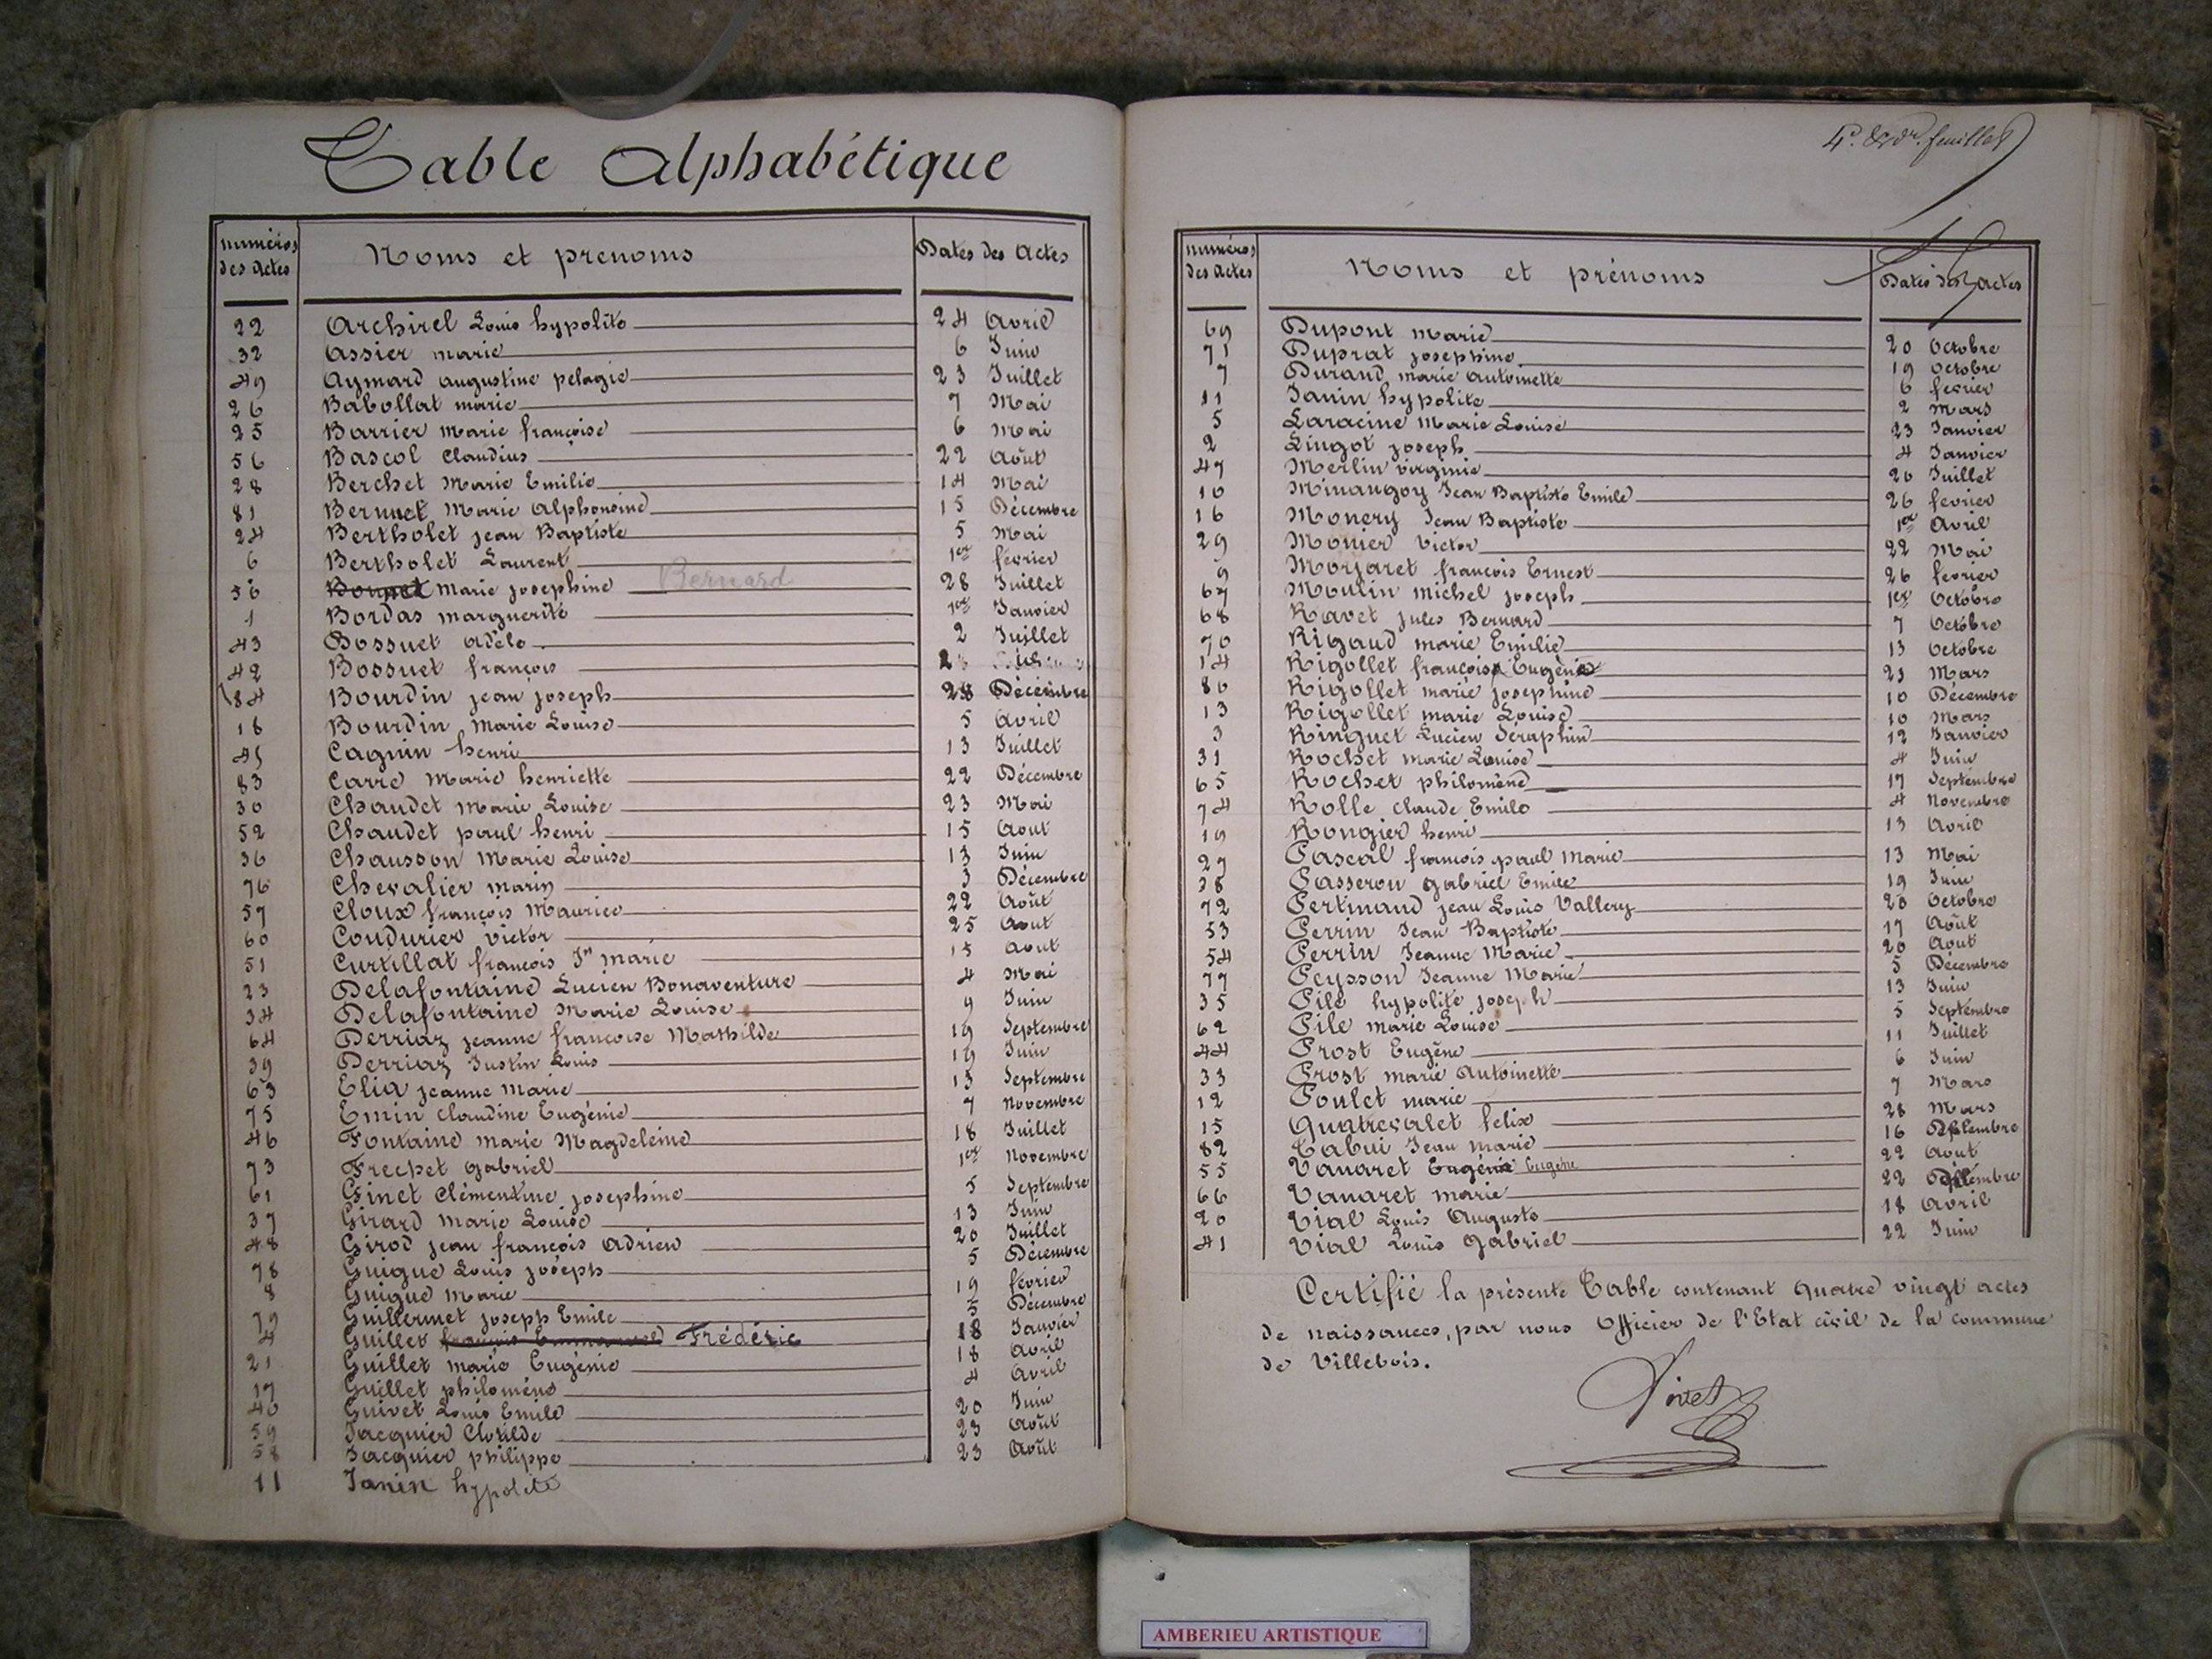 Table Alphabétique
numéros des Actes Noms et prenoms Dates des Actes
22 Archirel Louis hypolite 24 Avril
32 Assier marie 6 Juin
49 Aymard augustine pelagie 23 Juillet
26 Babollat marie 7 Mai
25 Barrier Marie françoise 6 Mai
56 Bascol Claudius 22 Août
28 Berchet Marie Emilie 14 Mai
81 Bernuet Marie Alphonsine 15 Décembre
24 Bertholet jean Baptiste 5 Mai
6 Bertholet Laurent 1er février
50 Bounet Marie josephine Bernard 28 Juillet
1 Bordas marguerite 1er Janvier
43 Bossuet adèle 2 Juillet
42 Bossuet françois
84 Bourdin jean joseph 28 Décembre
18 Bourdin Marie Louise 5 Avril
45 Cagnin henri 13 Juillet
83 Carre Marie henriette 22 Décembre
30 Chaudet Marie Louise 23 Mai
52 Chaudet paul henri 15 Aout
36 Chausson Marie Louise 13 Juin
76 Chevalier marin 3 Décembre
57 Cloux françois Maurice 22 Août
60 Coudurier Victor 25 Aout
51 Curtillat françois Jn Marie 15 Aout
23 Delafontaine Lucien Bonaventure 4 Mai
34 Delafontaine Marie Louise 9 Juin
64 Derriaz jeanne francoise Mathilde 19 Septembre
39 Derriaz Justin Louis 19 Juin
63 Elia jeanne Marie 13 Septembre
75 Emin Claudine Eugénie 7 Novembre
46 Fontaine marie Magdeleine 18 Juillet
73 Frechet Gabriel 1er Novembre
61 Ginet Clémentine josephine 5 Septembre
37 Girard marie Louise 13 Juin
48 Girod jean françois Adrien 20 Juillet
78 Guigue Louis joseph 5 Décembre
8 Guigue Marie 19 février
79 Guillermet joseph Emile 5 Décembre
4 Guillet Frédéric 18 Janvier
21 Guillet marie Eugénie 18 Avril
17 Guillet philoméne 4 Avril
40 Guivet Louis Emile 20 Juin
59 Jacquier Clotilde 23 Août
58 Jacquier philippe 23 Août
11 Janin hypolite
feuillet
numéros des Actes Noms et prénoms Dates des Actes
69 Dupont Marie 20 Octobre
71 Duprat josephine 19 Octobre
7 Durand marie Antoinette 6 février
11 Janin hypolite 2 Mars
5 Laracine Marie Louise 23 Janvier
2 Lingot joseph 4 Janvier
47 Merlin virginie 20 Juillet
10 Minangoy Jean Baptiste Emile 26 fevrier
16 Monery Jean Baptiste 1er Avril
29 Monier Victor 22 Mai
9 Morjaret françois Ernest 26 fevrier
67 Moulin michel joseph 1er Octobre
68 Ravet jules Bernard 7 Octobre
70 Rigaud marie Emilie 13 Octobre
14 Rigollet françois Eugène 21 Mars
80 Rigollet marie josephine 10 Décembre
13 Rigollet marie Louise 10 Mars
3 Ringuet Lucien Séraphin 12 Janvier
31 Rochet marie Louise 4 Juin
65 Rochet philomène 17 Septembre
74 Rolle Claude Emile 4 Novembre
19 Rongier henri 13 Avril
27 Pascal françois paul Marie 13 Mai
38 Passeron gabriel Emile 19 Juin
72 Pertinand jean Louis Vallery 20 Octobre
53 Perrin Jean Baptiste 17 Août
54 Perrin Jeanne Marie 20 Aout
77 Peysson Jeanne Marie 5 Décembre
35 Pile hypolite joseph 13 Juin
62 Pile marie Louise 5 Septembre
44 Prost Eugène 11 Juillet
33 Prost marie Antoinette 6 Juin
12 Poulet marie 7 Mars
15 Quatrevalet felix 28 Mars
82 Tabui Jean marie 16
55 Vanaret Eugénie Eugène 22 Aout
66 Vanaret marie 22
20 Vial Louis Auguste 18 Avril
41 Vial Louis Gabriel 22 Juin
Certifié la présente Table contenant Quatre vingt actes
de naissances, par nous Officier de l'Etat civil de la commune
de Villebois.
AMBERIEU ARTISTIQUE